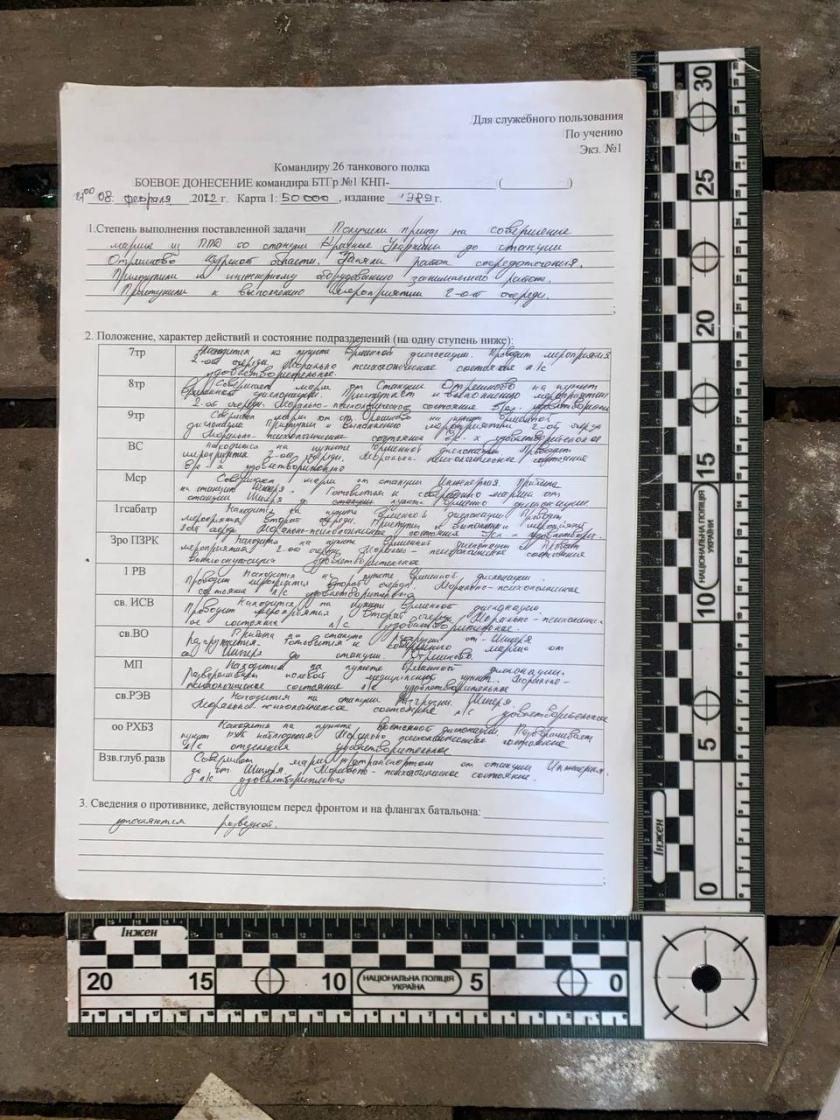 Для служебного пользования
По учению
Экз. №1
Командиру 26 танкового полка
БОЕВОЕ ДОНЕСЕНИЕ командира БТГр №1 КНП- ( )
08. февраля 2022 г. Карта 1: 50 000, издание 1989 г.
1.Степень выполнения поставленной задачи Получили приказ на совершение
марша из ППД со станции до станции
Отрешково Курской области. Заняли район сосредоточения.
Приступили к инженерному оборудованию занимаемого района.
Приступили к выполнению мероприятий 2-ой очереди.
2. Положение, характер действий и состояние подразделений (на одну ступень ниже):
7тр
Находится на пункте временной дислокации. Проводит мероприятия
2-ой очереди. Морально психологическое состояние л/с
удовлетворительное.
8тр
Совершает марш от станции Отрешково на пункт
временной дислокации. Приступает к выполнению мероприятий
2-ой очереди. Морально-психологическое состояние
9тр
Совершил марш от ст. на пункт временной
дислокации. Приступил к выполнению мероприятий 2-ой очереди
Морально-психологическое состояние л/с удовлетворительное
ВС
Находится на пункте временной дислокации. Проводит
мероприятия 2-ой очереди. Морально-психологическое состояние
л/с удовлетворительно
Мср
Совершает марш от станции Инженерная. Прибыла
на станцию Шигеря. Готовится к совершению марша от
станции Шигеря до пункта временной дислокации.
1гсабатр
Находится на пункте временной дислокации. Проводит
мероприятия второй очереди. Приступил к выполнению мероприятий
Морально-психологическое состояние л/с
Зро ПЗРК
Находится на пункте временной дислокации. Проводит
мероприятия 2-ой очереди. Морально-психологическое состояние
удовлетворительное
1 РВ
Находится на пункте временной дислокации.
Проводит мероприятия второй очереди. Морально-психологическое
состояние л/с удовлетворительное
св. ИСВ
Находится на пункте временной дислокации.
Проводит мероприятия второй очереди. Морально-психологическ-
ое состояние л/с удовлетворительное.
св.ВО
Прибыл на станцию разгрузки ст. Шигеря
Разгружается. Готовится к совершению марша от
ст. Шигеря до станции Отрешково.
МП
Находится на пункте временной дислокации.
Развернут полевой медицинский пункт. Морально-
психологическое состояние л/с удовлетворительное
св.РЭВ
Находится на станции разгрузки Шигеря.
Морально-психологическое состояние л/с удовлетворительное
оо РХБЗ
Находится на пункте временной дислокации. Разворачивает
пункт наблюдения. Морально психологическое состояние
л/с отделения удовлетворительное
Взв.глуб.разв
Совершает марш ж/д транспортом от станции Инженерная
до ст. Шигеря. Морально-психологическое состояние
л/с удовлетворительно
3. Сведения о противнике, действующем перед фронтом и на флангах батальона:
уточняются разведкой.
30
25
20
15
НАЦІОНАЛЬНА ПОЛІЦІЯ
УКРАЇНИ
10
5
0
Інжен
Інжен
20 15 10 НАЦІОНАЛЬНА ПОЛІЦІЯ
УКРАЇНА 5 0